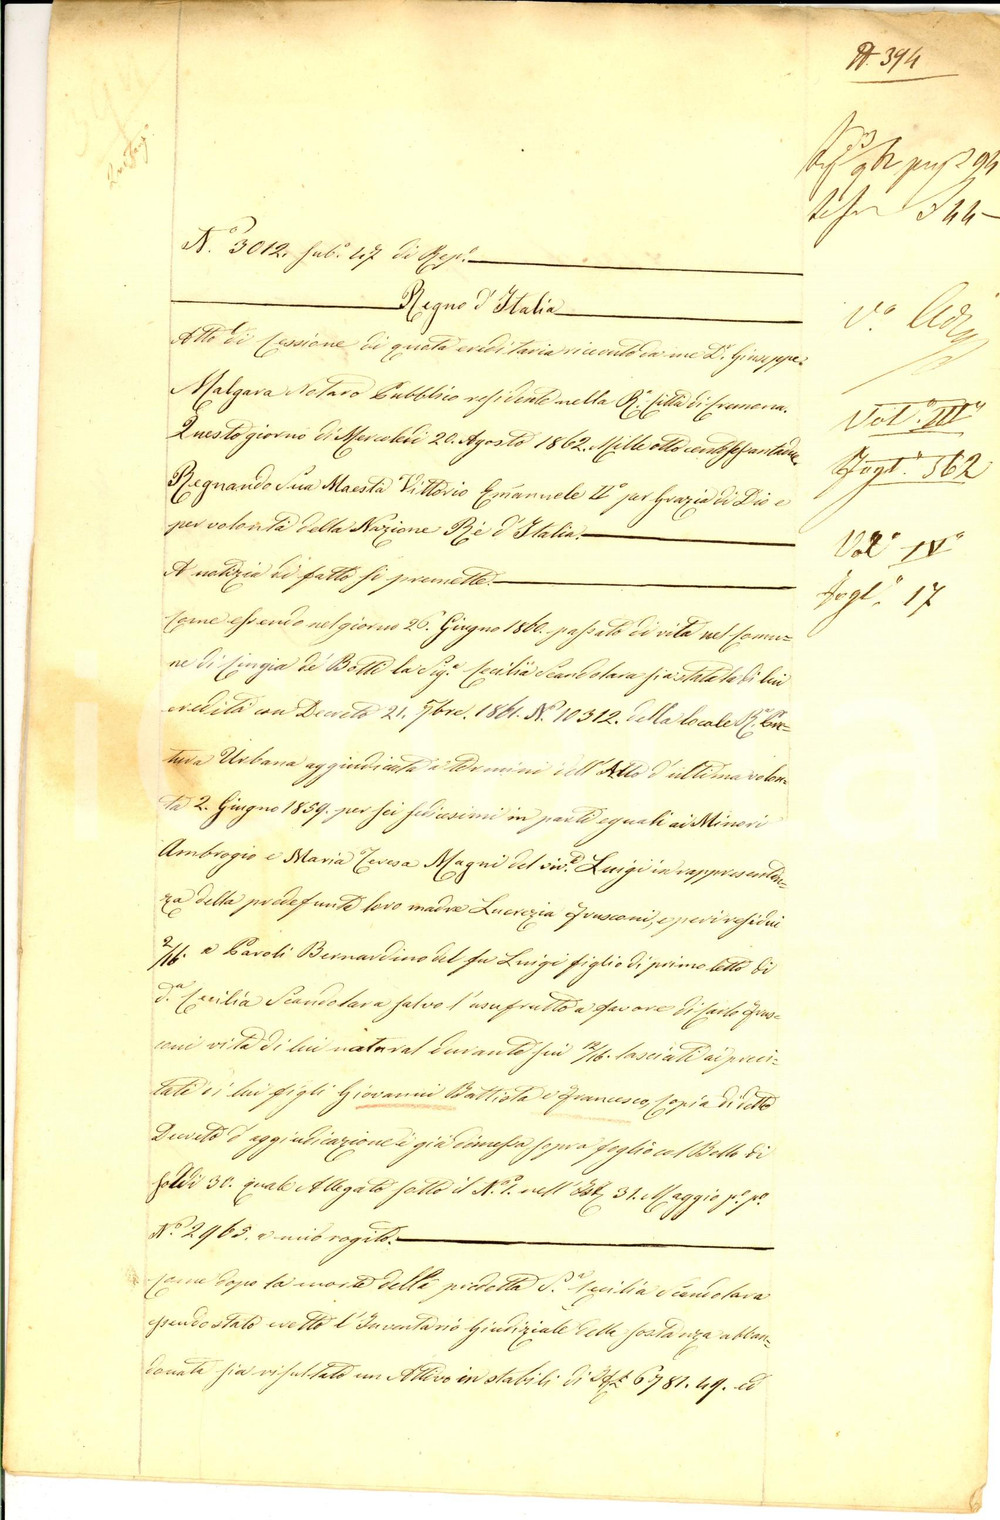 N. 394
Vº
Vol.º IIIº
Fogl.º 362
Vol.º IVº
Fogl.º 17
N.º 3012. sub.º 47 di Rep.º
Regno d'Italia
Atto di Cessione di quota ereditaria ricevuto da me D.r Giuseppe
Malgara Notaro Pubblico residente nella R.a Città di Cremona.
Questo giorno di Mercoledì 20. Agosto 1862. Mille ottocentosessantadue.
Regnando Sua Maestà Vittorio Emanuele IIº per Grazia di Dio e
per volontà della Nazione Rè d'Italia.
A notizia di fatto si premette.
Come essendo nel giorno 26. Giugno 1860. passato di vita nel Comu=
ne di Cingia de' Botti la Sig.a Cecilia Scandolara sia stata la di lei
eredità con Decreto 21. 7bre. 1861. Nº 10312. della locale R.a Pre=
tura Urbana aggiudicata a termini dell'Atto d'ultima volon=
tà 2. Giugno 1859. per sei sedicesimi in parti eguali ai Minori
Ambrogio e Maria Teresa Magni del viv.e Luigi in rappresentan=
za della predefunta loro madre Lucrezia Frusconi, e per i residui
2/16. a Paroli Bernardino del fu Luigi figlio di primo letto di
d.a Cecilia Scandolara salvo l'usufrutto a favore di Carlo Frus=
coni vita di lui natural durante sui 12/16. lasciati ai preci=
tati di lui figli Giovanni Battista e Francesco, copia di detto
Decreto d'aggiudicazione è già dimessa sopra foglio col Bollo di
soldi 30. quale Allegato sotto il N.º 1. nell' 31. Maggio p.º p.º
N.º 2965. a mio rogito.
Come dopo la morte della predetta S.a Cecilia Scandolara
essendo stato eretto l'Inventario Giudiziale della sostanza abban=
donata sia risultato un Attivo in stabili di 6781. 49. ed